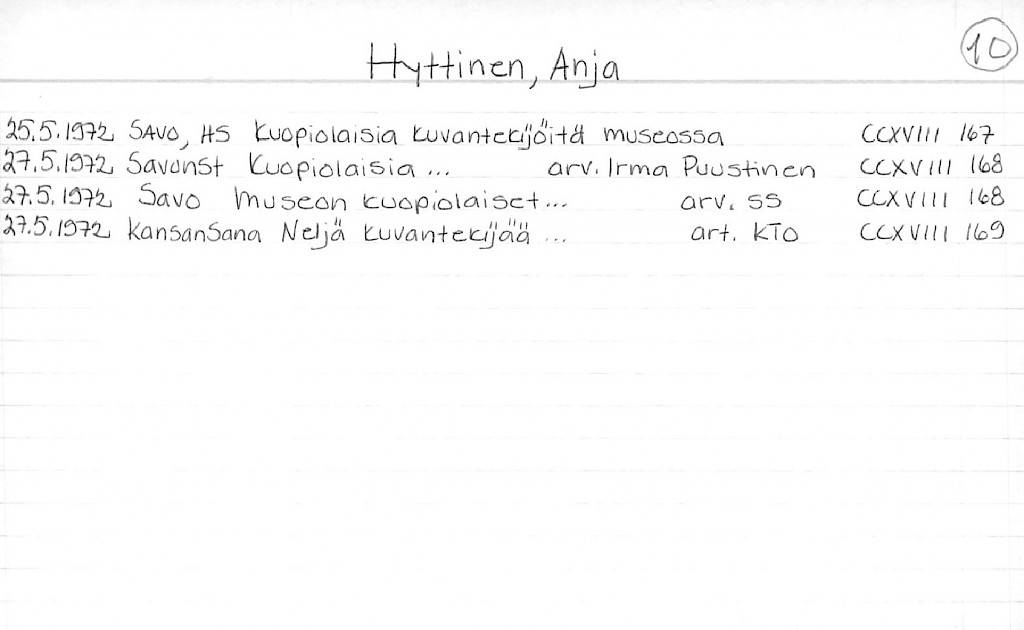 10
Hyttinen, Anja
25.5.1972 SAVO, HS Kuopiolaisia kuvantekijöitä museossa CCXVIII 167
27.5.1972 SavonSt Kuopiolaisia ... arv. Irma Puustinen CCXVIII 168
27.5.1972 Savo Museon kuopiolaiset... arv. SS CCXVIII 168
27.5.1972 KansanSana Neljä kuvantekijää ... art. KTO CCXVIII 169